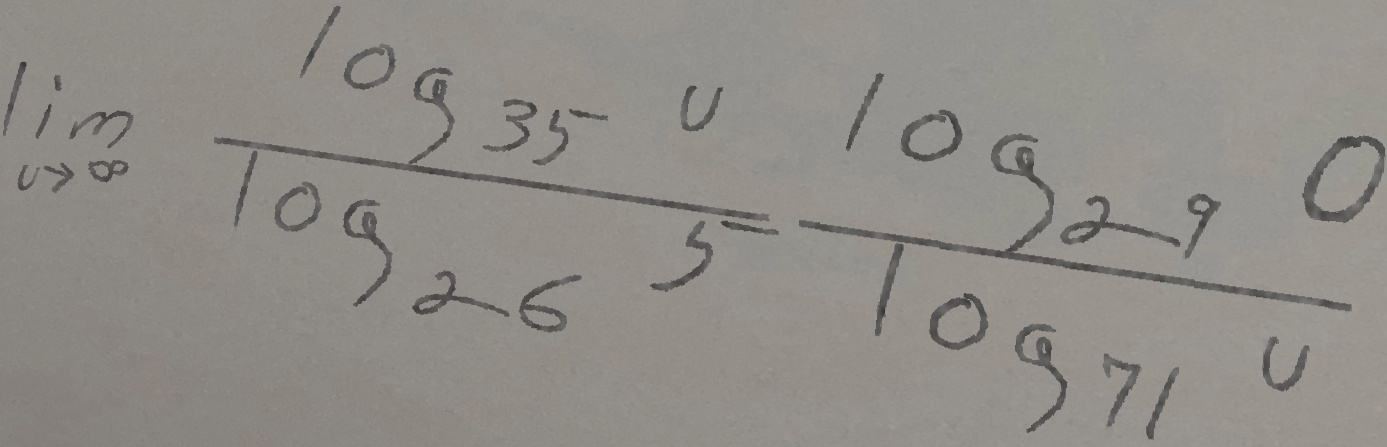 lim u→∞ log₃₅ u / log₂₆ 5 log₂₉ 0 / log₇₁ u